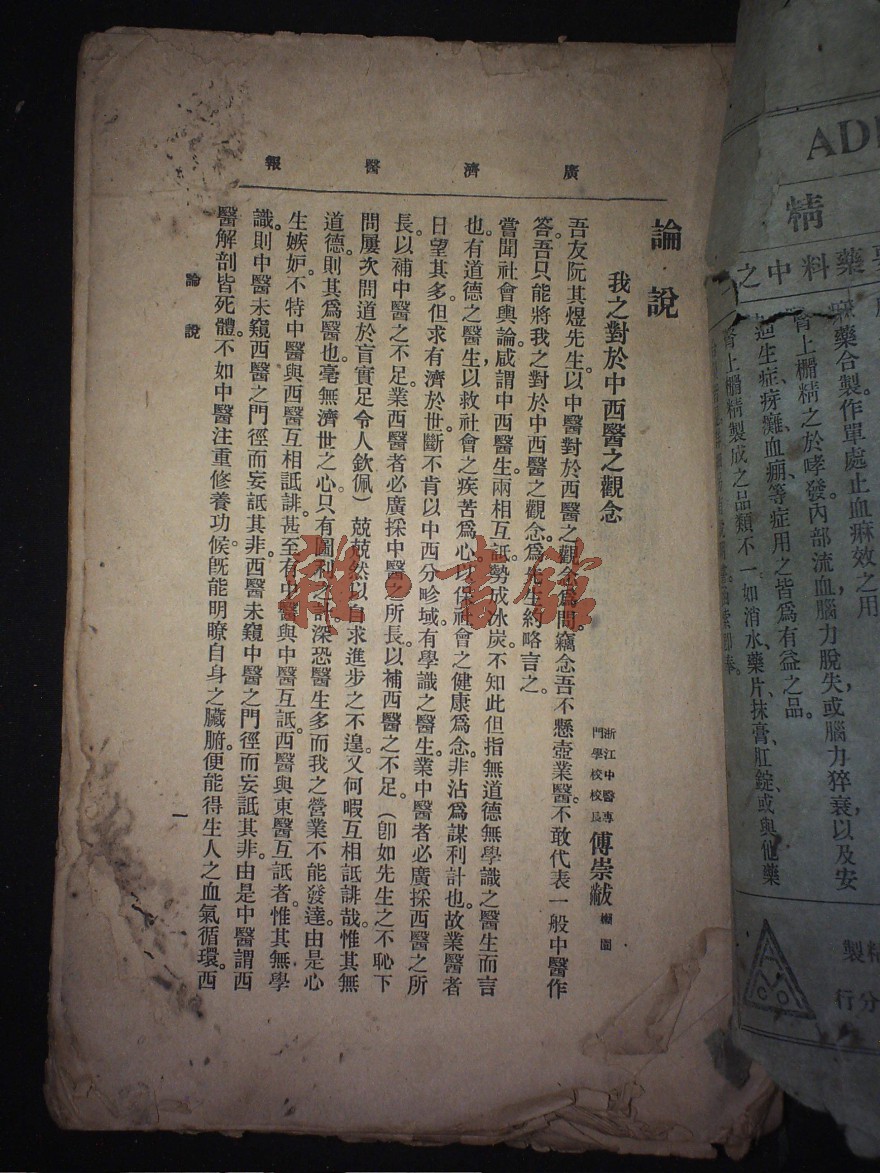 廣濟醫報
論說
我之對於中西醫之觀念
浙江中醫專
門學校校長
傅崇黻
櫥園
吾友阮其煜先生。以中醫對於西醫之觀念爲問。竊念吾不懸壺業醫。不敢代表一般中醫作
答。吾只能將我之對於中西醫之觀念。爲先生約略言之。
嘗聞社會輿論。咸謂中西醫生。兩相互詆。勢成冰炭。不知此但指無道德無學識之醫生而言
也。有道德之醫生,以救社會之疾苦爲心。以保社會之健康爲念。非沾爲謀利計也。故業醫者
日望其多。但求有濟於世。斷不肯以中西分畛域。有學識之醫生。業中醫者必廣採西醫之所
長。以補中醫之不足。業西醫者必廣採中醫之所長。以補西醫之不足。(卽如先生之不恥下
問屢次問道於盲實足令人欽佩)兢兢然以自求進步之不遑。又何暇互相詆誹哉。惟其無
道德。則其爲醫也。毫無濟世之心。只有圖利之計。深恐醫生多而我之營業不能發達。由是心
生嫉妒。不特中醫與西醫互相詆誹。甚至有中醫與中醫互詆。西醫與東醫互詆者。惟其無學
識。則中醫未窺西醫之門徑而妄詆其非。西醫未窺中醫之門徑而妄詆其非。由是中醫謂西
醫解剖皆死體。不如中醫注重修養功候。旣能明瞭自身之臟腑。便能得生人之血氣循環。西
論說
一
雜·書館
AD
精
藥料中之
麻藥合製作單處止血麻效之用
腎上櫥精之於哮發內部流血腦力脫失或腦力猝衰以及安
生症痨癱血崩等症用之皆爲有益之品。
腎上櫥精製成之品類不一如消水、藥片、抹膏、肛錠、或與他藥
製
分行